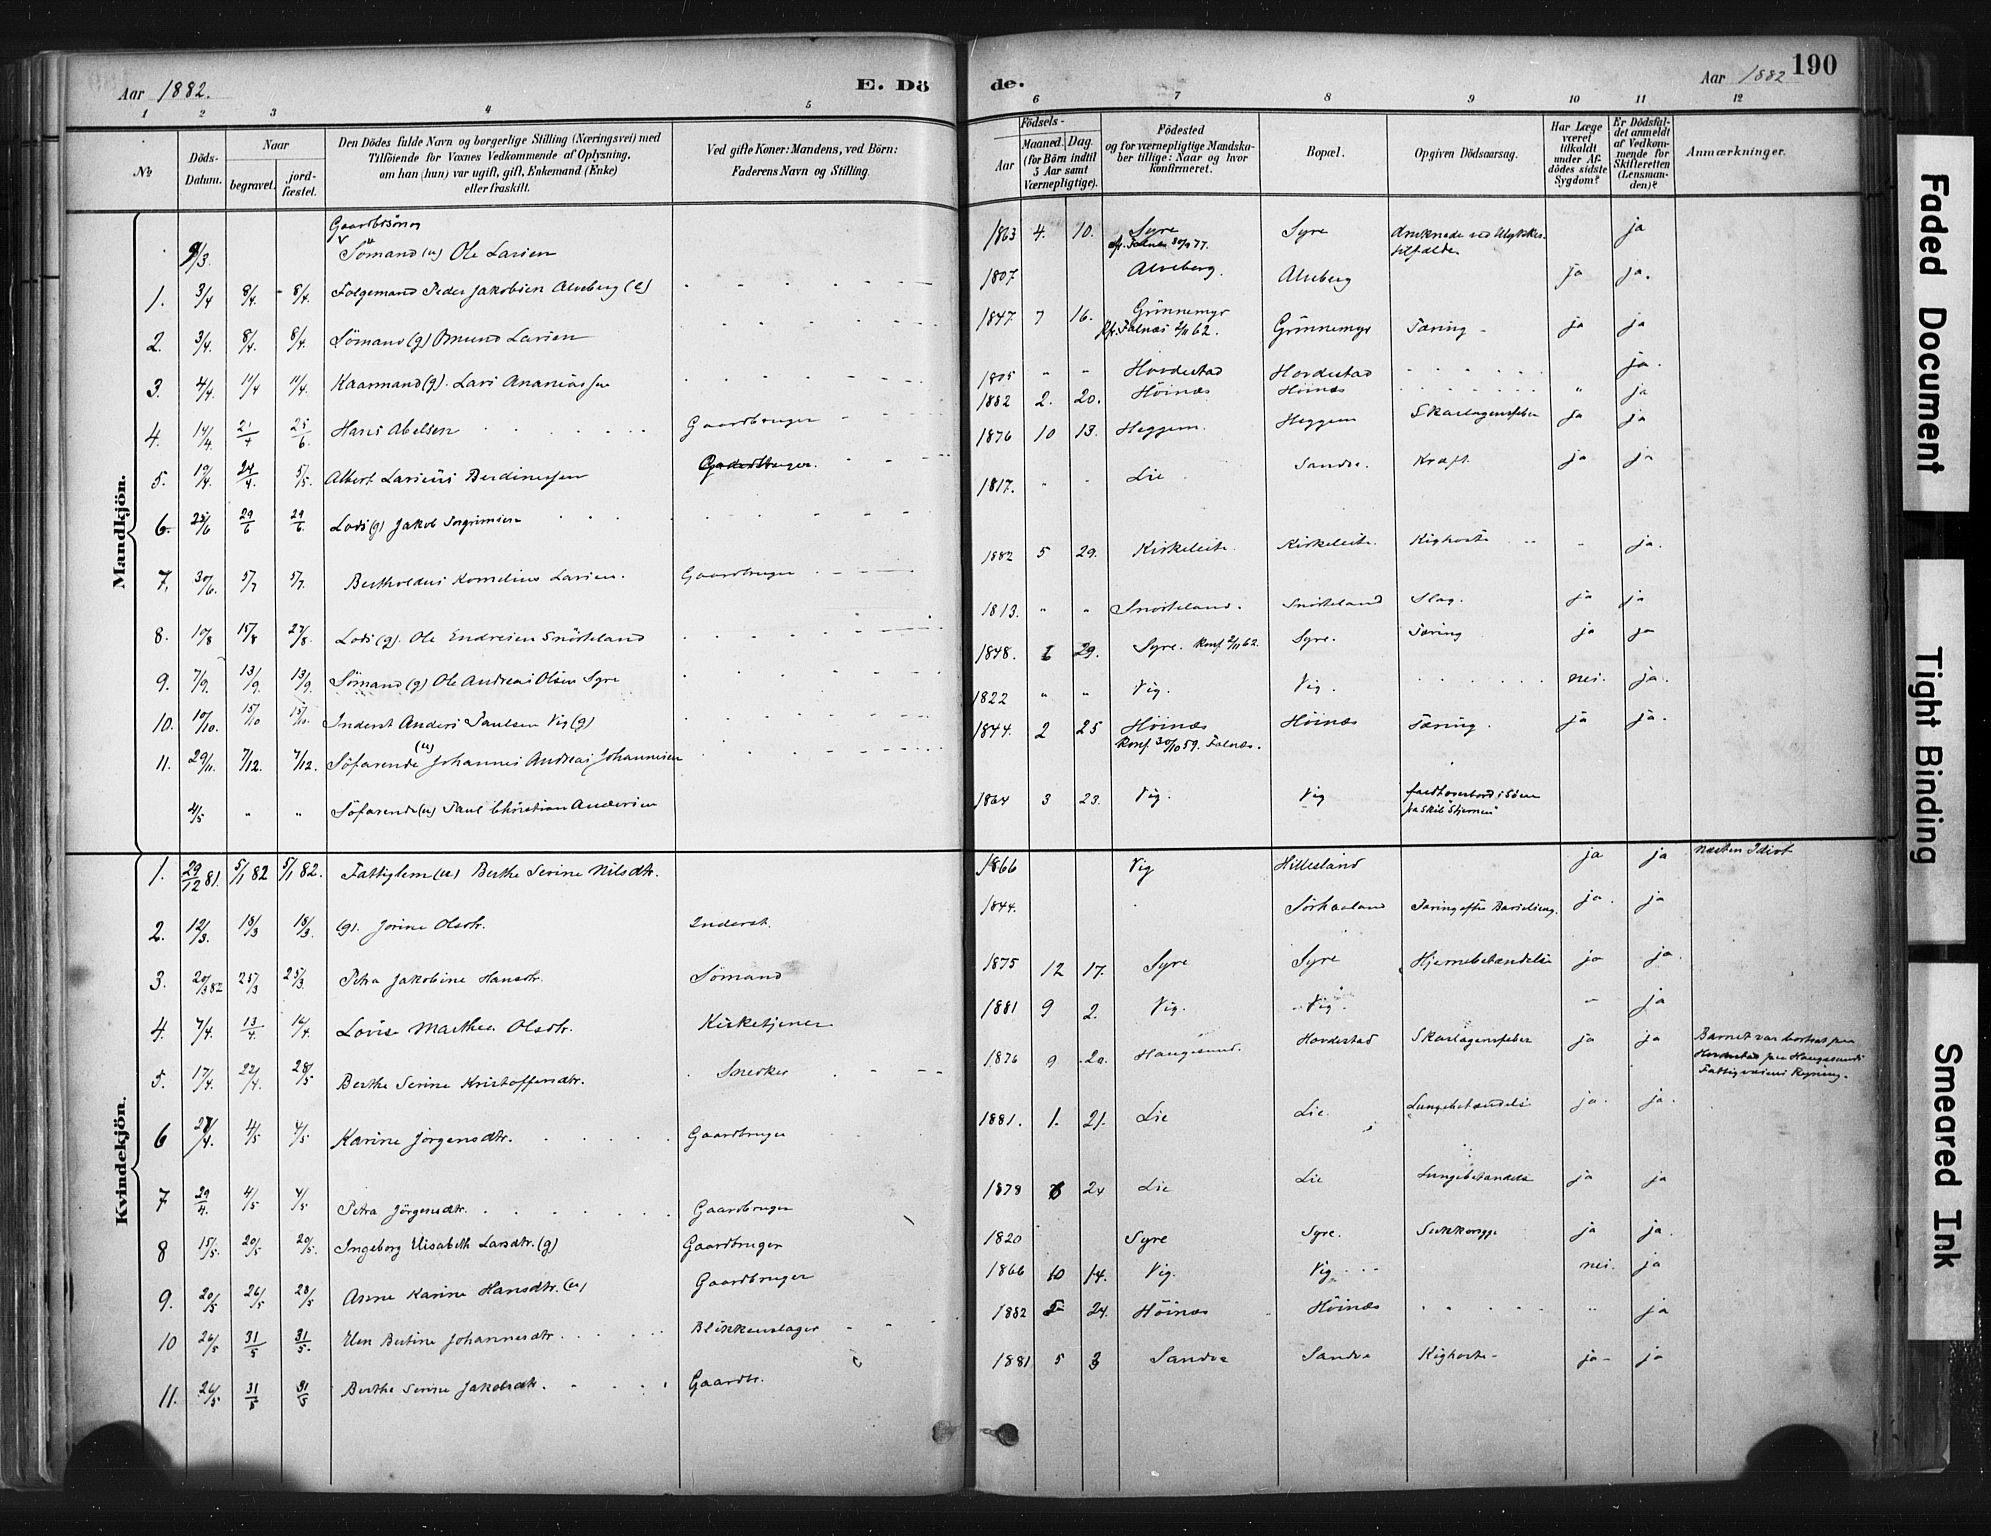 Aar 1882.
E. Dö
1 2 3 4 5
No
Döds-Datum.
Naar
begravet. jord-fæstet.
Den Dödes fulde Navn og borgerlige Stilling (Næringsvei) med
Tilföiende for Voxnes Vedkommende af Oplysning,
om han (hun) var ugift, gift, Enkemand (Enke)
eller fraskilt.
Ved gifte Koner: Mandens, ved Börn:
Faderens Navn og Stilling.
Mandkjön.
Gaardbrsönog
9/3 Sömand (u) Ole Larsen
1. 3/4 8/4. 8/4. Folgemand Peder Jakobsen Alveberg (e)
2. 3/4. 8/4. 8/4. Sömand (g) Omund Larsen
3. 4/4. 11/4 11/4. Kaarmand (g). Lars Ananiassen
4. 14/4 21/4 25/6. Hans Abelsen Gaardbruger
5. 19/4. 24/4. 5/5. Albert Larsius Berdinessen Gaardbruger.
6. 25/6 29/6 29/6. Lods (g) Jakob Torgrimsen
7. 30/6. 5/7 5/7. Bertholdus Kornelius Larsen. Gaardbruger
8. 10/8 15/8 27/8. Lods (g). Ole Endresen Snörteland
9. 7/9. 13/9. 13/9. Sömand (g) Ole Andreas Olsen Syre
10. 10/10. 15/10 15/10. Inderst Anders Paulsen Vig (g)
11. 29/11. 7/12. 7/12. Söfarende (u) Johannes Andreas Johannesen
4/5 " " Söfarende (u) Paul Christian Andersen
Kvindekjön.
1. 29/12 81. 5/1 82 5/1 82. Fattiglem (u) Berthe Serine Nilsdtr.
2. 12/3. 18/3 18/3. (g). Jorine Olsdtr. Inderst.
3. 20/3 82 25/3 25/3. Petra Jakobine Hansdtr. Sömand
4. 7/4. 13/4 16/4 Lovise Marthea Olsdtr. Kirketjener
5. 17/4. 22/4. 28/5 Berthe Serine Kristoffersdtr. Snedker
6 27/4. 4/5 4/5 Karine Jörgensdtr. Gaardbruger
7 29/4. 4/5 4/5 Petra Jörgensdtr. Gaardbruger
8 15/5. 20/5 20/5. Ingeborg Elisabeth Larsdtr. (g) Gaardbruger
9. 20/5 26/5 28/5 Anne Karine Hansdtr. (u) Gaardbruger
10 26/5 31/5 31/5. Elen Bertine Johannesdtr. Blikkenslager
11. 26/5 31/5 31/5 Berthe Serine Jakobsdtr. Gaardbr.
de.
Aar 1882 190
6 7 8 9 10 11 12
Födsels-
Aar Maaned. Dag
(for Börn indtil
5 Aar samt
Værnepligtige).
Födested
og for værnepligtige Mandska-
ber tillige: Naar og hvor
konfirmeret.
Bopæl.
Opgiven Dödsaarsag.
Har Læge
været
tilkaldt
under Af-
dödes sidste
Sygdom?
Er Dödsfal-
det anmeldt
af Vedkom-
mende for
Skifteretten
(Lensman-
den)?
Anmærkninger.
1863 4. 10. Syre Syre druknede ved Ulykkes- ja
Falnes 30/9 77. tilfælde
1807 Alveberg. Alveberg ja ja.
1847 7 16. Grönnemyr Grönnemyr Tæring ja ja
Kf. Falnæs 2/11 62.
1805 " " Hovdestad Hovdestad ja.
1882 2. 20. Höinæs Höinæs " ja
1876 10 13. Heggem. Heggem Skarlagensfeber ja ja
1817. " " Lie Sandve. Kræft. ja ja
1882 5 29. Kirkeleite. Kirkeleite. Kighoste " ja.
1813. " " Snörteland. Snörteland Slag. ja ja
1848. 6 29. Syre. Konf. 2/11 62. Syre. Tæring ja ja
1822 " " Vig. Vig. nei. ja.
1844. 2 25 Höinæs Höinæs Tæring. ja ja.
Konf. 30/10 59. Falnæs.
1864 3 23. Vig. Vig faldt overbord i Söen
fra Skib "Stjernen"
1866 Vig Hillesland ja ja næsten Idiot
1844. Sörhaaland Tæring efter Barselseng. ja. ja
1875 12 17. Syre Syre Hjernebetændelse ja ja.
1881 9 2. Vig. Vig. - ja
1876 9 20. Haugesund. Hovdestad Skarlagensfeber ja ja Barnet var bortsat paa
Hovdestad paa Haugesunds
Fattigvæsens Regning.
1881. 1. 21. Lie Lie. Lungebetændelse ja. ja.
1878 6 24 Lie Lie Lungebetændelse ja ja
1820 Syre Syre. Sukkersyge ja ja.
1866 10 14. Vig. Vig nei. ja
1882 5 24. Höinæs Höinæs " ja
1881 5 3 Sandve Sandve Kighoste ja ja
Faded Document
Tight Binding
Smeared Ink